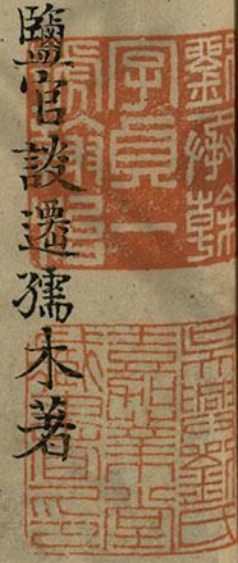 劉承幹
字貞一
號翰怡
吳興劉氏
嘉業堂
藏書印
鹽官談遷孺木著